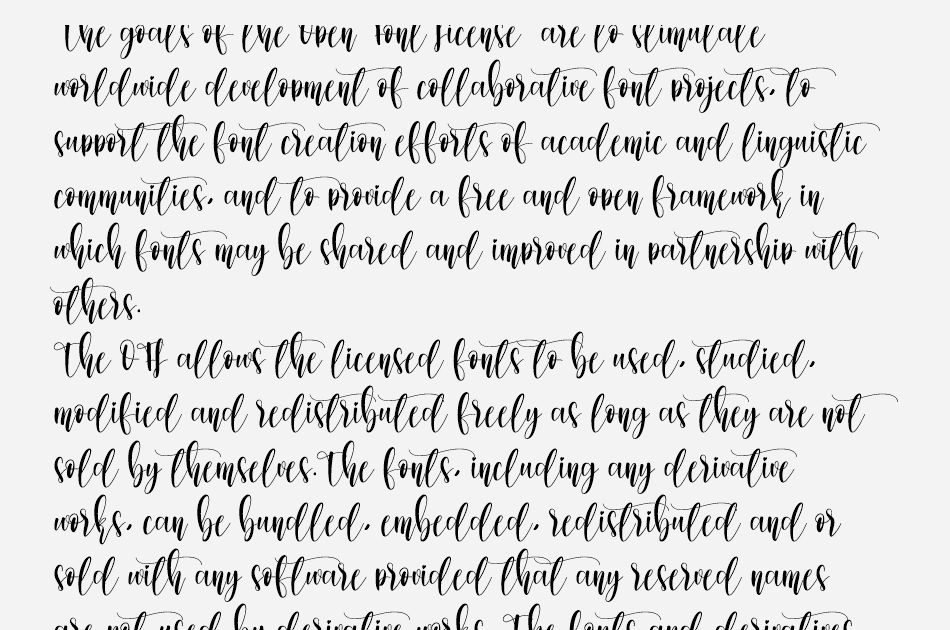 The goals of the Open Font License are to stimulate
worldwide development of collaborative font projects, to
support the font creation efforts of academic and linguistic
communities, and to provide a free and open framework in
which fonts may be shared and improved in partnership with
others.
The OFL allows the licensed fonts to be used, studied,
modified and redistributed freely as long as they are not
sold by themselves. The fonts, including any derivative
works, can be bundled, embedded, redistributed and or
sold with any software provided that any reserved names
are not used by derivative works. The fonts and derivatives